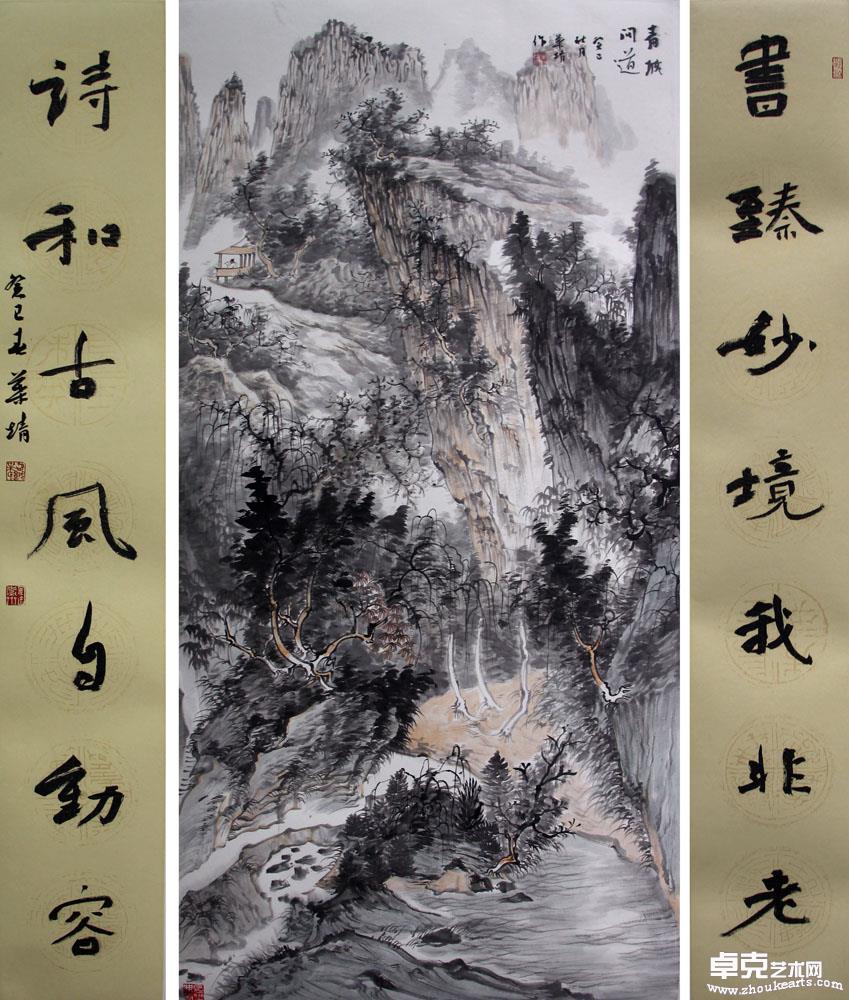 書臻妙境我非老
青城
問道
癸巳
秋月
作
詩和古風自動容
癸巳春
卓克艺术网
www.zhoukearts.com